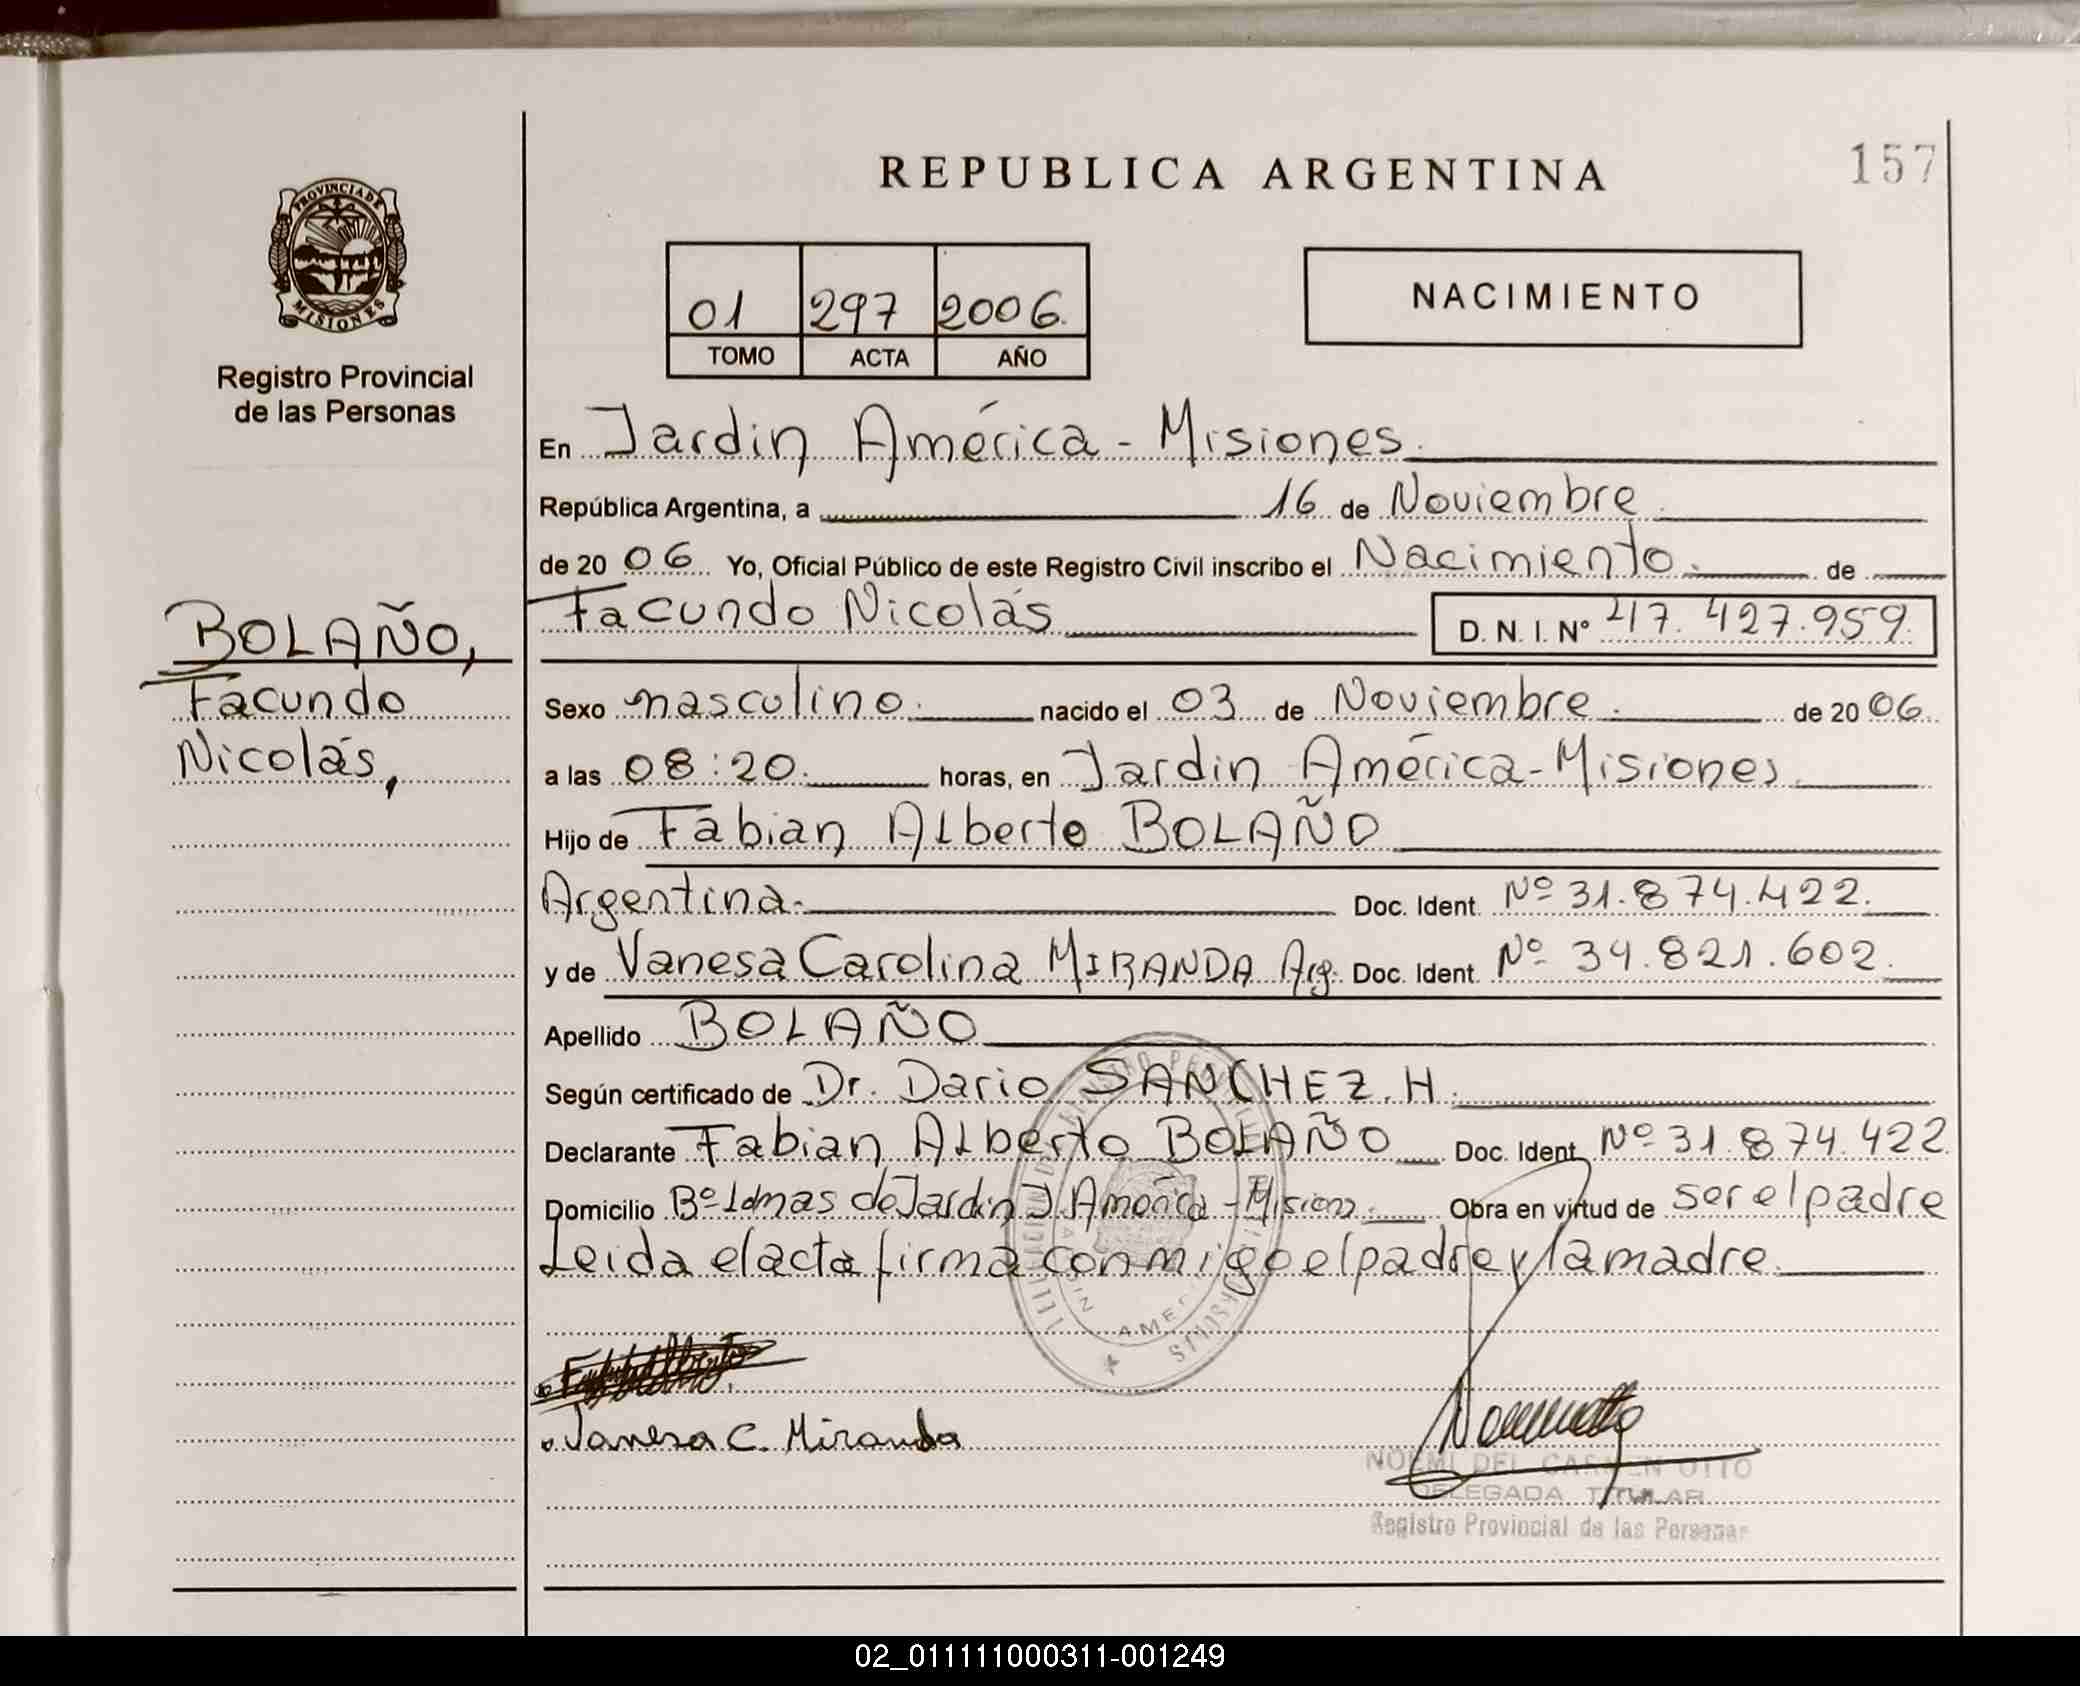 REPUBLICA ARGENTINA
157
PROVINCIA DE
MISIONES
Registro Provincial
de las Personas
01 297 2006.
TOMO ACTA AÑO
NACIMIENTO
En Jardin América - Misiones.
República Argentina, a 16 de Noviembre
de 20 06 Yo, Oficial Público de este Registro Civil inscribo el Nacimiento. de
Facundo Nicolás D. N. I. Nº 47.427.959.
BOLAÑO,
Facundo
Nicolás,
Sexo masculino. nacido el 03 de Noviembre. de 20 06.
a las 08:20. horas, en Jardin América-Misiones.
Hijo de Fabian Alberto BOLAÑO
Argentina. Doc. Ident. Nº 31.874.422.
y de Vanesa Carolina MIRANDA Arg. Doc. Ident. Nº 34.821.602.
Apellido BOLAÑO
Según certificado de Dr. Dario SANCHEZ. H.
Declarante Fabian Alberto BOLAÑO Doc. Ident. Nº 31.874.422.
Domicilio Bº Lomas de Jardin J. América - Misions. Obra en virtud de ser el padre
Leida el acta firma conmigo el padre y la madre.
Vanesa C. Miranda
NOEMI DEL CARMEN OTTO
DELEGADA TITULAR
Registro Provincial de las Personas
02_011111000311-001249